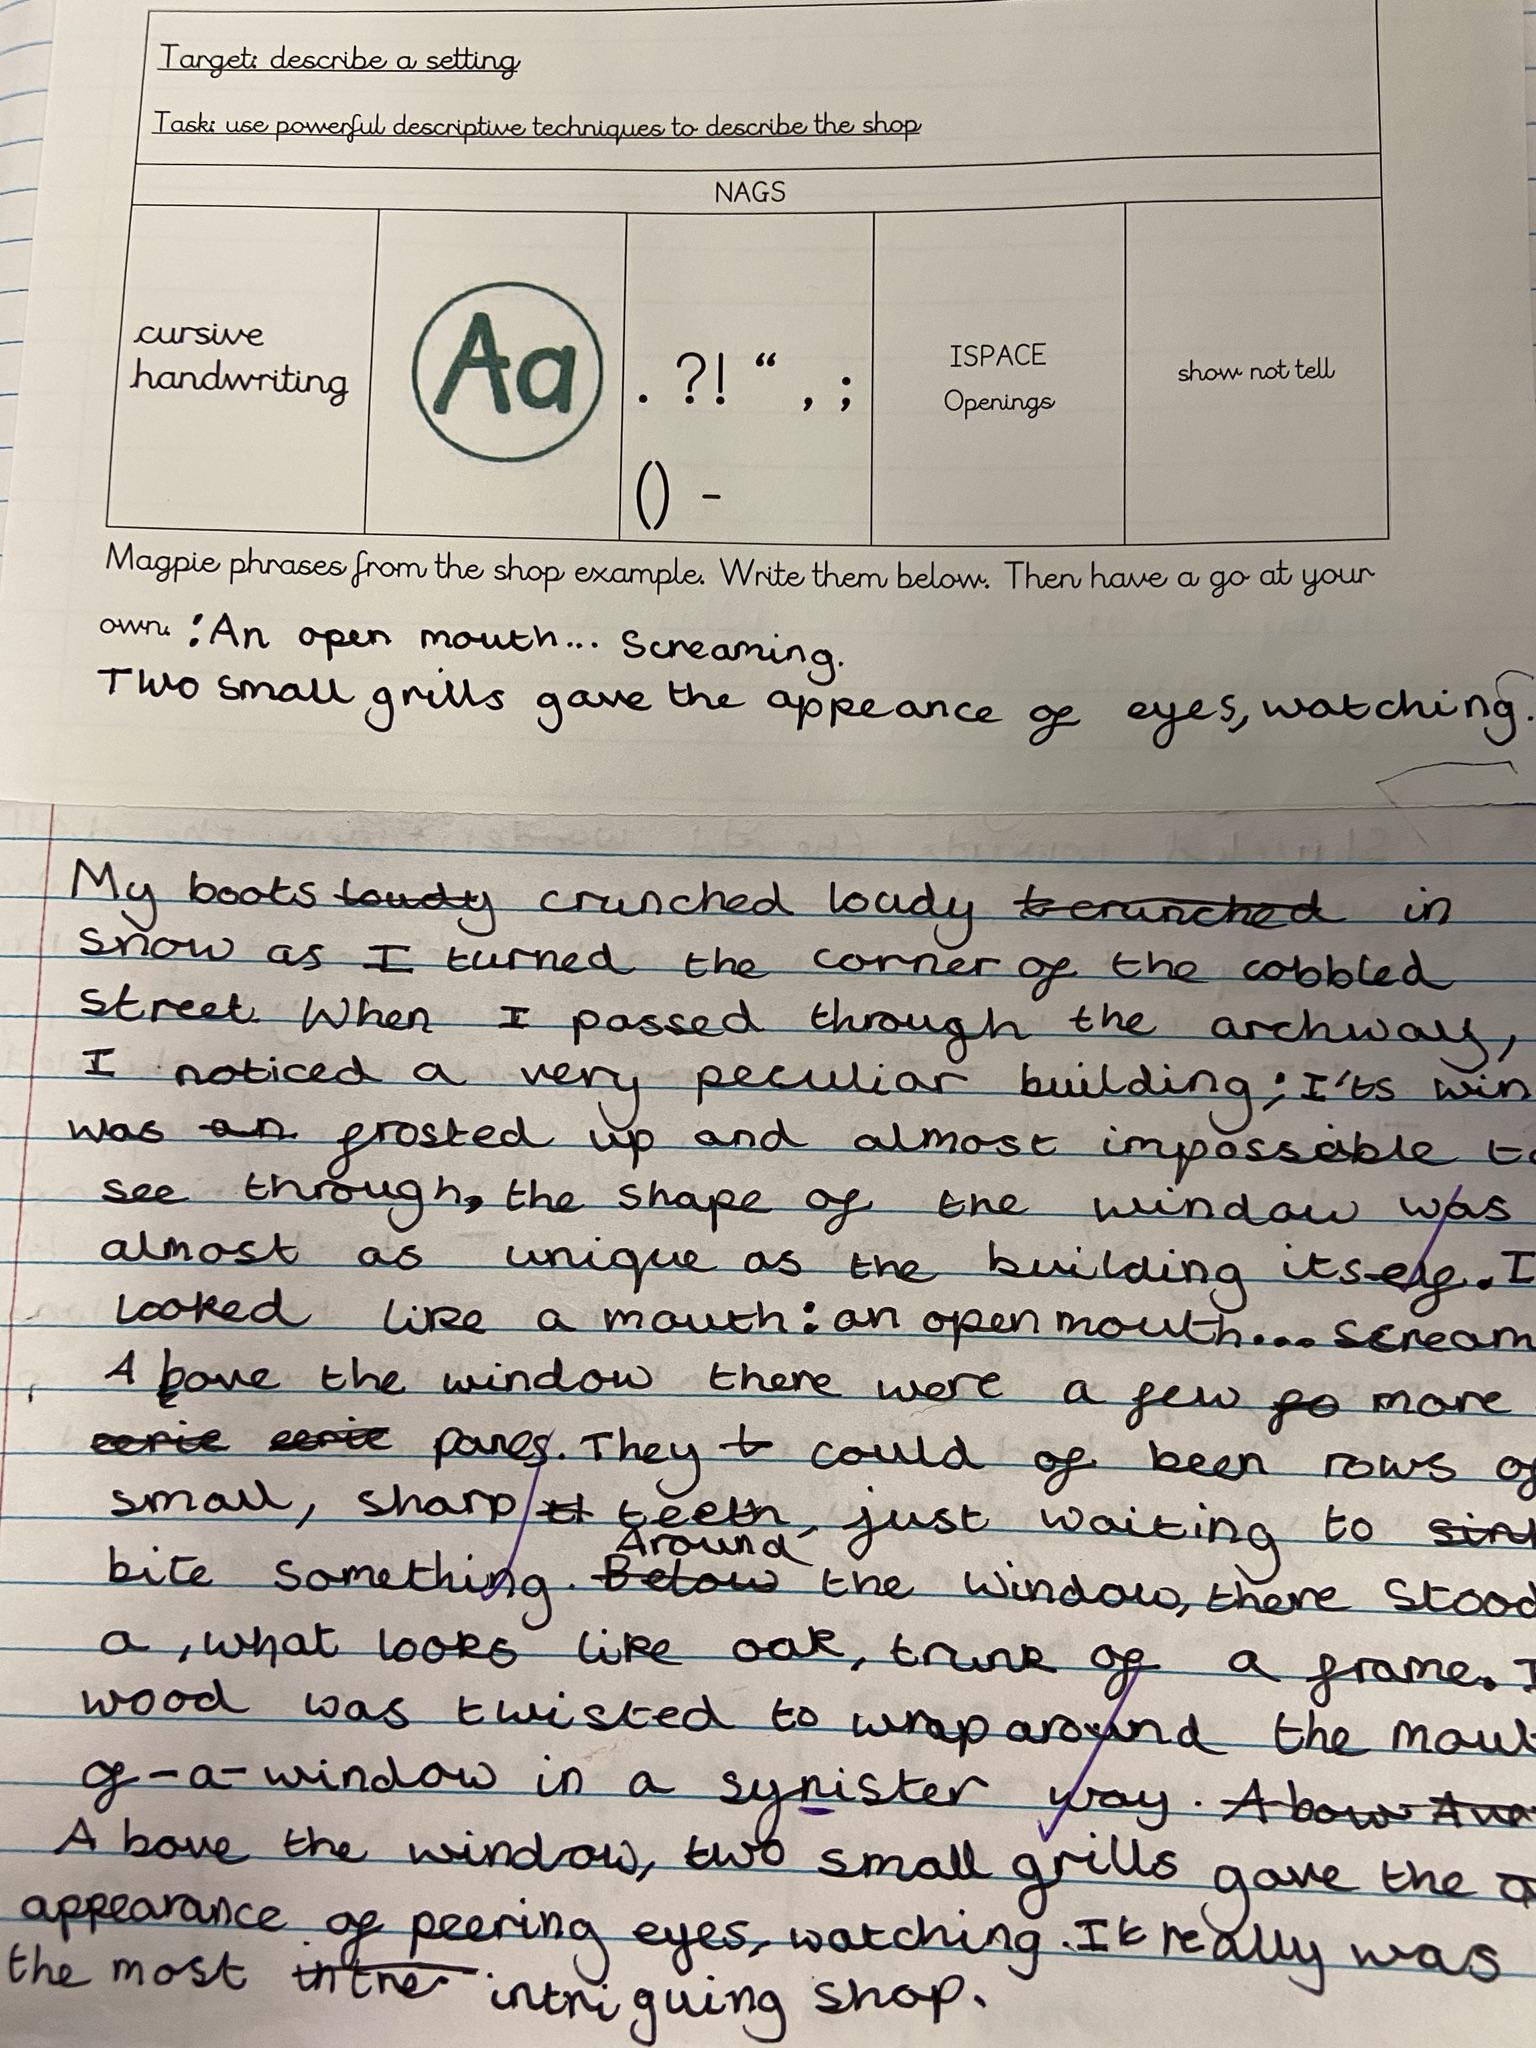 Target: describe a setting
Task: use powerful descriptive techniques to describe the shop
NAGS
cursive
handwriting
Aa
. ?! “ , ;
() -
ISPACE
Openings
show not tell
Magpie phrases from the shop example. Write them below. Then have a go at your
own. : An open mouth... Screaming.
Two small grills gave the appeance of eyes, watching.
My boots loudy crunched loudy crunched in
snow as I turned the corner of the cobbled
street. When I passed through the archway,
I noticed a very peculiar building; I'ts win
was an frosted up and almost impossible to
see through, the shape of the window was
almost as unique as the building itself. I
looked like a mouth: an open mouth... scream
Above the window there were a few go more
eerie eerie panes. They t could of been rows of
small, sharp tt teeth, just waiting to
bite something. Below Around the window, there stood
a, what looks like oak, trunk of a frame. I
wood was twisted to wrap around the mout
of-a-window in a synister way. Abow
Above the window, two small grills gave the a
appearance of peering eyes, watching. It really was
the most intre intriguing shop.